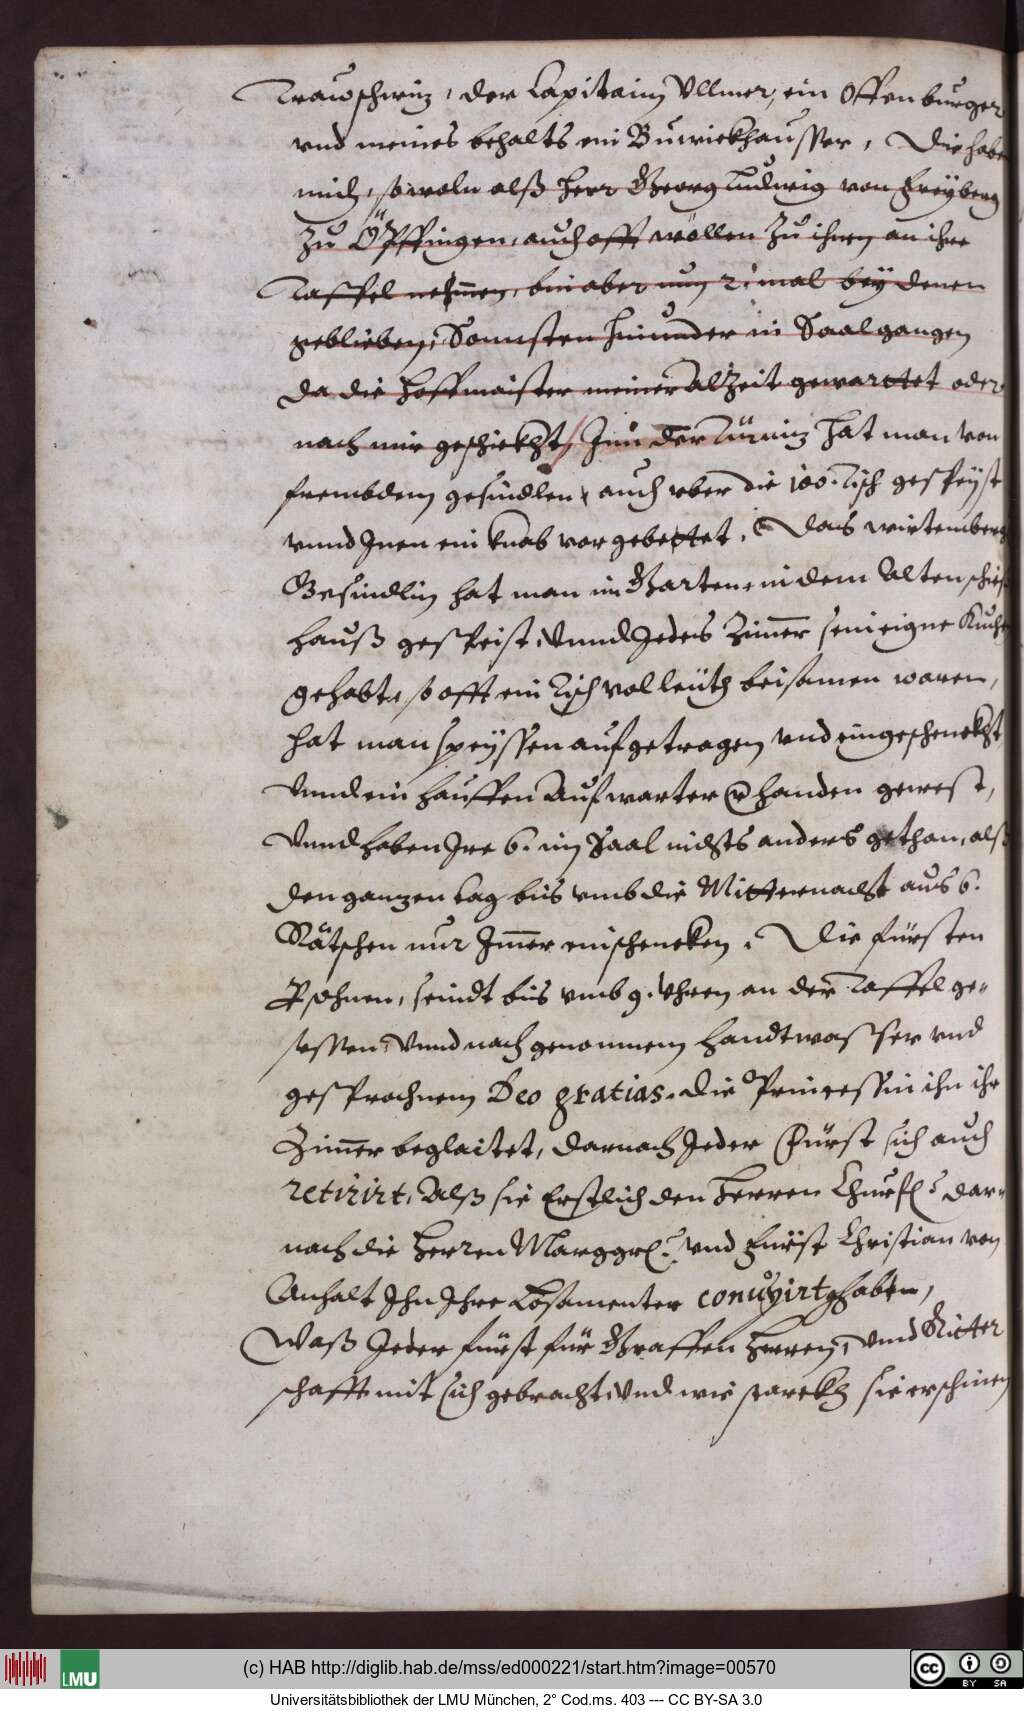 Trawschwiz, der Capitain Vllmer, ein Offenburger
vnd meines behalts ein Buwickhausser, Die habe
mich, sowoln alß Herr Georg Ludwig von Freyberg
zu Öpffingen, auch offt wöllen zu ihnen an ihre
Taffel nehmen, bin aber nun 2. mal bey denen
geblieben, Sonnsten hinunder in Saal gangen
da die Hoffmaister meiner alzeit gewarttet oder
nach mir geschickht / Inn der Türniz hat man von
frembdem gesindlen, auch vber die 100. Tisch gespeyst
vnnd Inen ein knab vorgebettet. Das wirtemberg
Gesindlin hat man im Garten, in dem Alten schieß
hauß gespeist, vnnd Jedes Zimer sein eigne Kuch
gehabt, so offt ein Tisch vol leüth beisamen waren,
hat man speyssen aufgetragen vnd eingeschenckht
vnnd ein hauffen Aufwarter verhanden gewest,
vnnd haben Jre 6. im Saal nichts anders gethan, alß
den ganzen tag bis vmb die Mitternacht aus 6.
Rätschen nur Immer einschencken. Die fürsten
Personen, seindt bis vmb 9. Vhren an der Taffel ge-
sessen, vnnd nach genommem Handtwasser vnd
gesprochnem Deo gratias. die Princessin ihn ihr
Zimer beglaitet, darnach Jeder Fürst sich auch
retirirt, Alß sie Erstlich den Herren Churf. dar-
nach die Herren Marggr. vnd Fürst Christian von
Anhalt Ihn Ihre Losamenter convyirt haben,
Waß Jeder fürst für Graffen Herren, vnnd Ritter
schafft mit sich gebracht, vnd wie starckh sie erschinen
(c) HAB http://diglib.hab.de/mss/ed000221/start.htm?image=00570
LMU
cc BY SA
Universitätsbibliothek der LMU München, 2° Cod.ms. 403 --- CC BY-SA 3.0